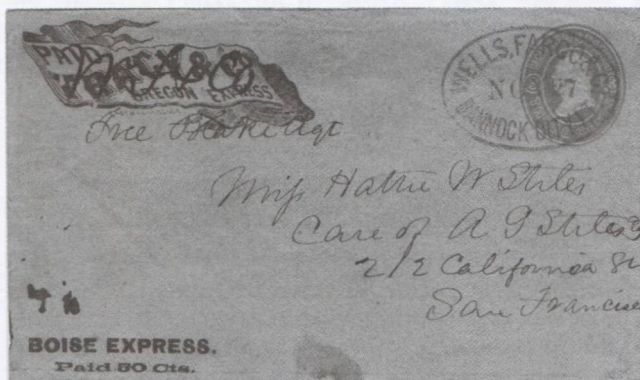 PAID
OREGON EXPRESS
WELLS, FARGO & CO.
NO 27
BANNOCK CITY
Free
Agt
Miss Hattie W Stiles
Care of A G Stiles
212 California St
San Francisc
BOISE EXPRESS.
Paid 50 Cts.